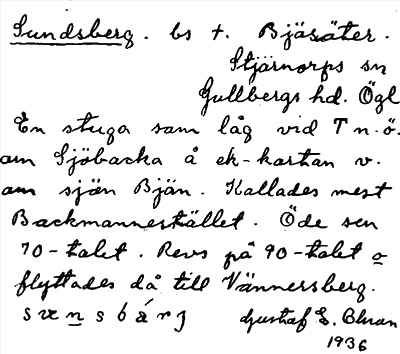 Sundsberg. bs t. Bjäsäter.
Stjärnorps sn
Gullbergs hd. Ögl
En stuga som låg vid T n.ö.
om Sjöbacka å ek-kartan v.
om sjön Bjän. Kallades mest
Backmannestället. Öde sen
70-talet. Revs på 90-talet o
flyttades då till Vännersberg.
Gustaf E. Bhran
1936